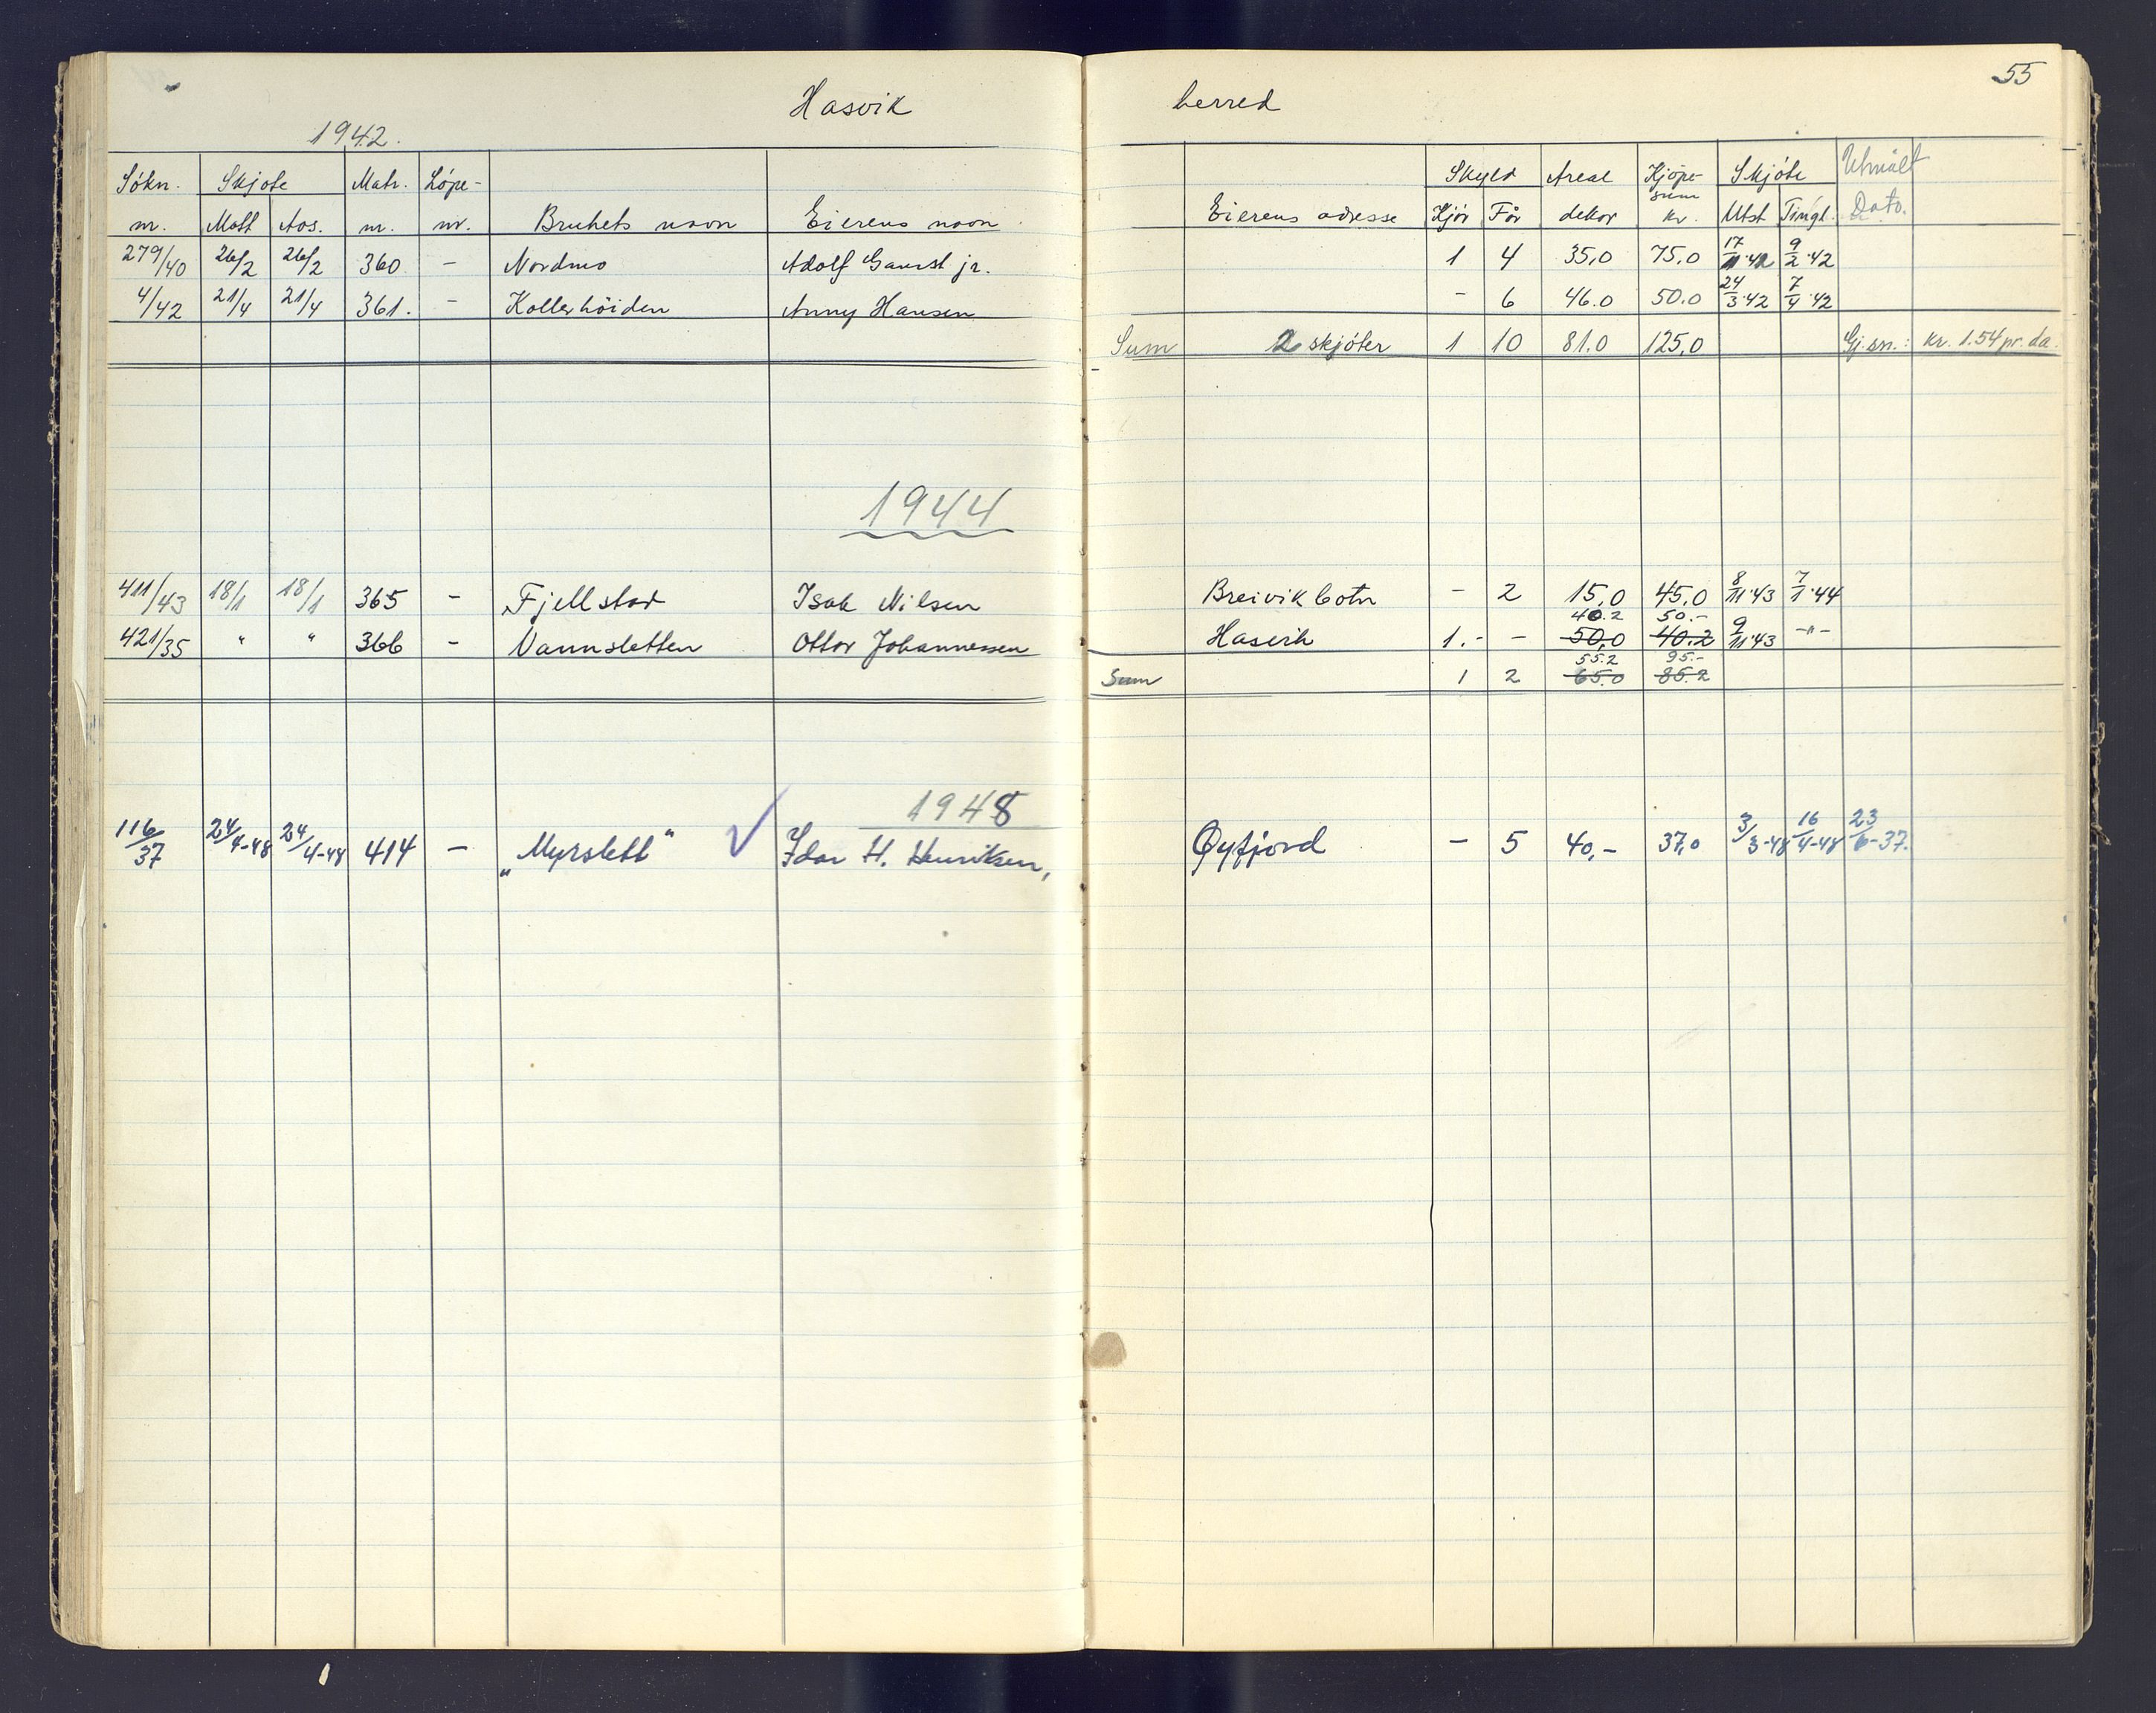 Hasvik herred 55
1942.
Søkn. Skjøte Matr. Løpe- Skyld Areal Kjøpe- Skjøte Utmålt
nr. Mott Avs. nr. nr. Brukets navn Eierens navn Eierens adresse Kjør Får dekar sum kr. Utst Tingl. Dato.
279/40 26/2 26/2 360 - Nordmo Adolf Gamst jr. 1 4 35,0 75,0 17/11.42 9/2.42
4/42 21/4 21/4 361. - Kollerhöiden Anny Hansen - 6 46.0 50.0 24/3.42 7/4.42
Sum 2 skjöter 1 10 81.0 125,0 Gj.sn.: kr. 1.54 pr. da.
1944
411/43 18/1 18/1 365 - Fjellstad Isak Nilsen Breivikbotn - 2 15,0 45,0 8/11.43 7/1.44
40.2 50.-
421/35 " " 366 - Vannsletten Ottar Johannessen Hasvik 1.- - 50,0 40.2 9/11.43 -"-
55.2 95.-
Sum 1 2 65.0 85.2
1948
116/37 24/4-48 24/4-48 414 - "Myrslett" Idar H. Henriksen, Øyfjord - 5 40,- 37,0 3/3-48 16/4-48 23/6-37.